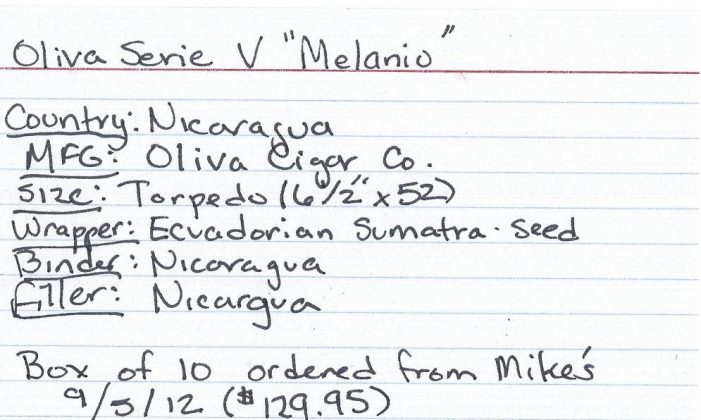 Oliva Serie V "Melanio"
Country: Nicaragua
MFG: Oliva Cigar Co.
Size: Torpedo (6 1/2" x 52)
Wrapper: Ecuadorian Sumatra-Seed
Binder: Nicaragua
Filler: Nicargua
Box of 10 ordered from Mike's
9/5/12 ($129.95)